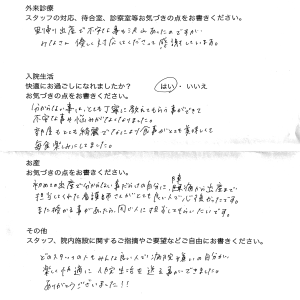 外来診療
スタッフの対応、待合室、診察室等お気づきの点をお書きください。
里帰り出産で不安な事も沢山あったのですが
みなさん優しく対応してくださって感謝しています。
入院生活
快適にお過ごしになれましたか？ はい ・ いいえ
お気づきの点をお書きください。
分からない事も、とても丁寧に教えてもらう事ができて
不安な事や悩みがなくなりました。
部屋もとても綺麗でなにより食事がとても美味しくて
毎食楽しみにしてました。
お産
お気づきの点をお書きください。
初めての出産で分からない事だらけの自分に、陣痛から出産まで
担当してくれた看護師さんがとても良い人で心強かったです。
また機会が事があったら、同じ人に担当してもらいたいです。
その他
スタッフ、院内施設に関するご指摘やご要望などご自由にお書きください。
どのスタッフの人もみんな良い人で病院嫌いの自分が
楽しく快適に入院生活を送る事ができました。
ありがとうございました!!